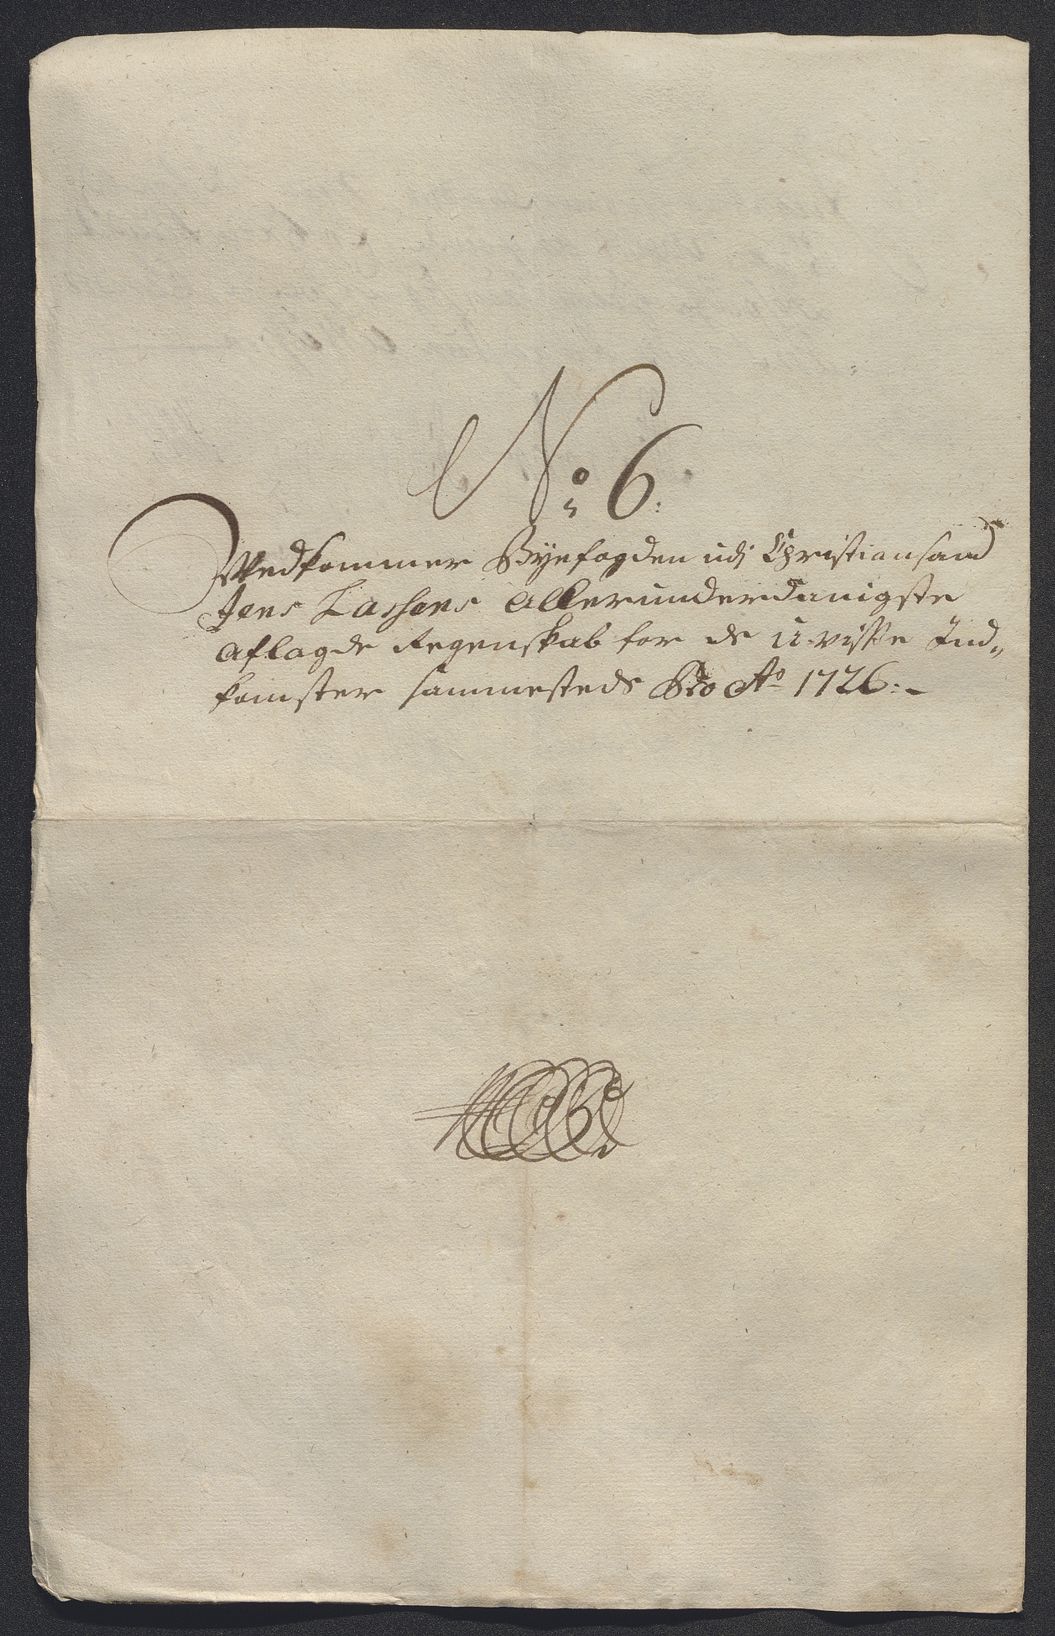 No 6:
Vedkommer Byefogden udj Christiansand
Jens Lassens Allerunderdanigste
aflagde Regenskab for de u-visse Ind„
komster sammesteds Pro Ao 1726:-